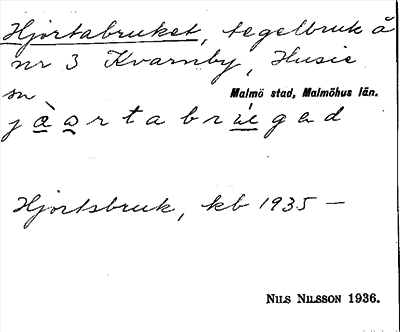 Hjortabruket, tegelbruk å
nr 3 Kvarnby, Husie
sn
Malmö stad, Malmöhus län.
jàọrtabrùꞓgad
Hjortsbruk, kb 1935 —
Nils Nilsson 1936.